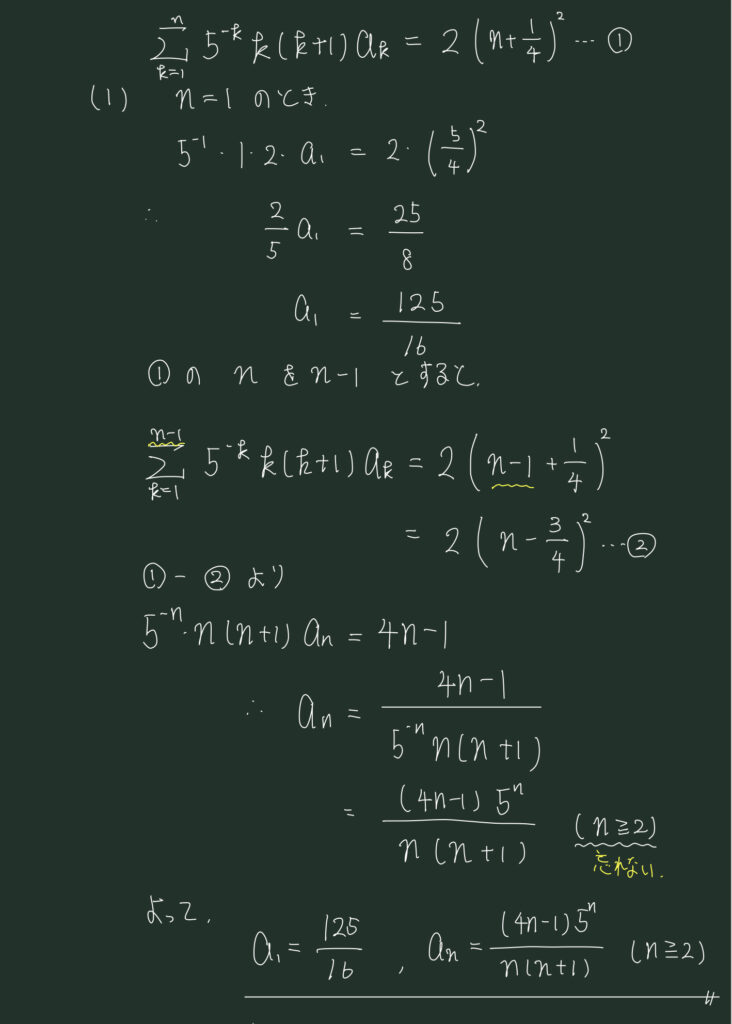 \sum_{k=1}^{n} 5^{-k} k(k+1) a_k = 2\left(n+\frac{1}{4}\right)^2 \cdots ①
(1) n=1 のとき.
5^{-1}・1・2・a_1 = 2・\left(\frac{5}{4}\right)^2
∴ \frac{2}{5} a_1 = \frac{25}{8}
a_1 = \frac{125}{16}
① の n を n-1 とすると.
\sum_{k=1}^{n-1} 5^{-k} k(k+1) a_k = 2\left(n-1+\frac{1}{4}\right)^2
= 2\left(n-\frac{3}{4}\right)^2 \cdots ②
①-② より
5^{-n}・n(n+1) a_n = 4n-1
∴ a_n = \frac{4n-1}{5^{-n} n(n+1)}
= \frac{(4n-1) 5^n}{n(n+1)} (n≧2)
忘れない.
よって.
a_1 = \frac{125}{16} , a_n = \frac{(4n-1)5^n}{n(n+1)} (n≧2)